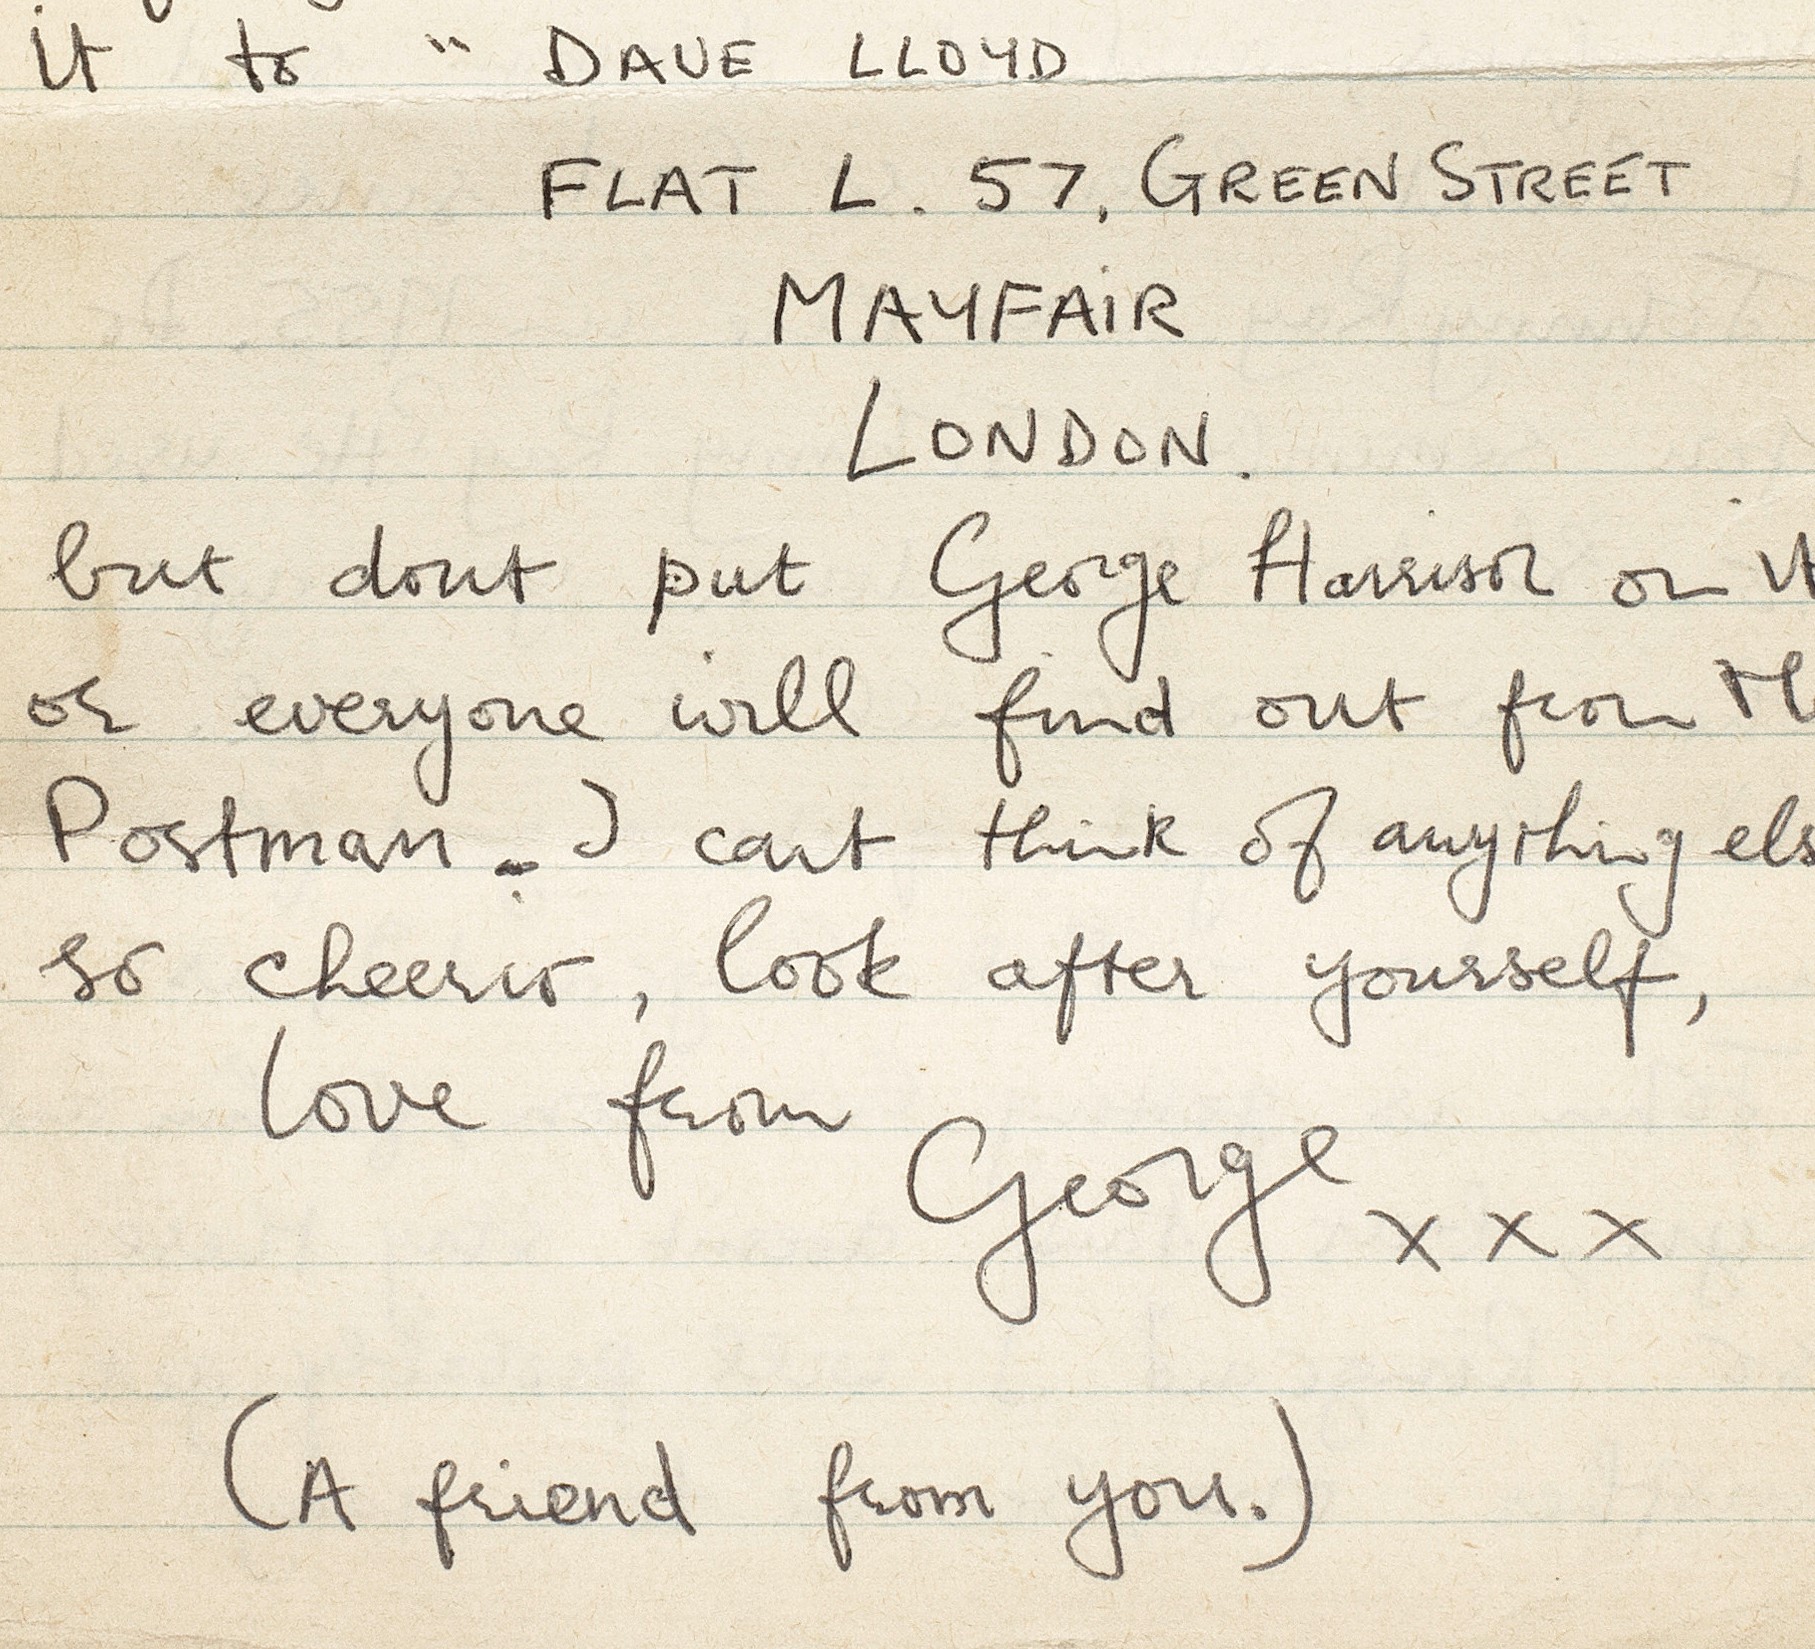 it to " DAVE LLOYD
FLAT L. 57, GREEN STREET
MAYFAIR
LONDON.
but dont put George Harrison on it
or everyone will find out from M
Postman. I cant think of anything els
so cheerio, look after yourself,
love from
George x x x
(A friend from you.)